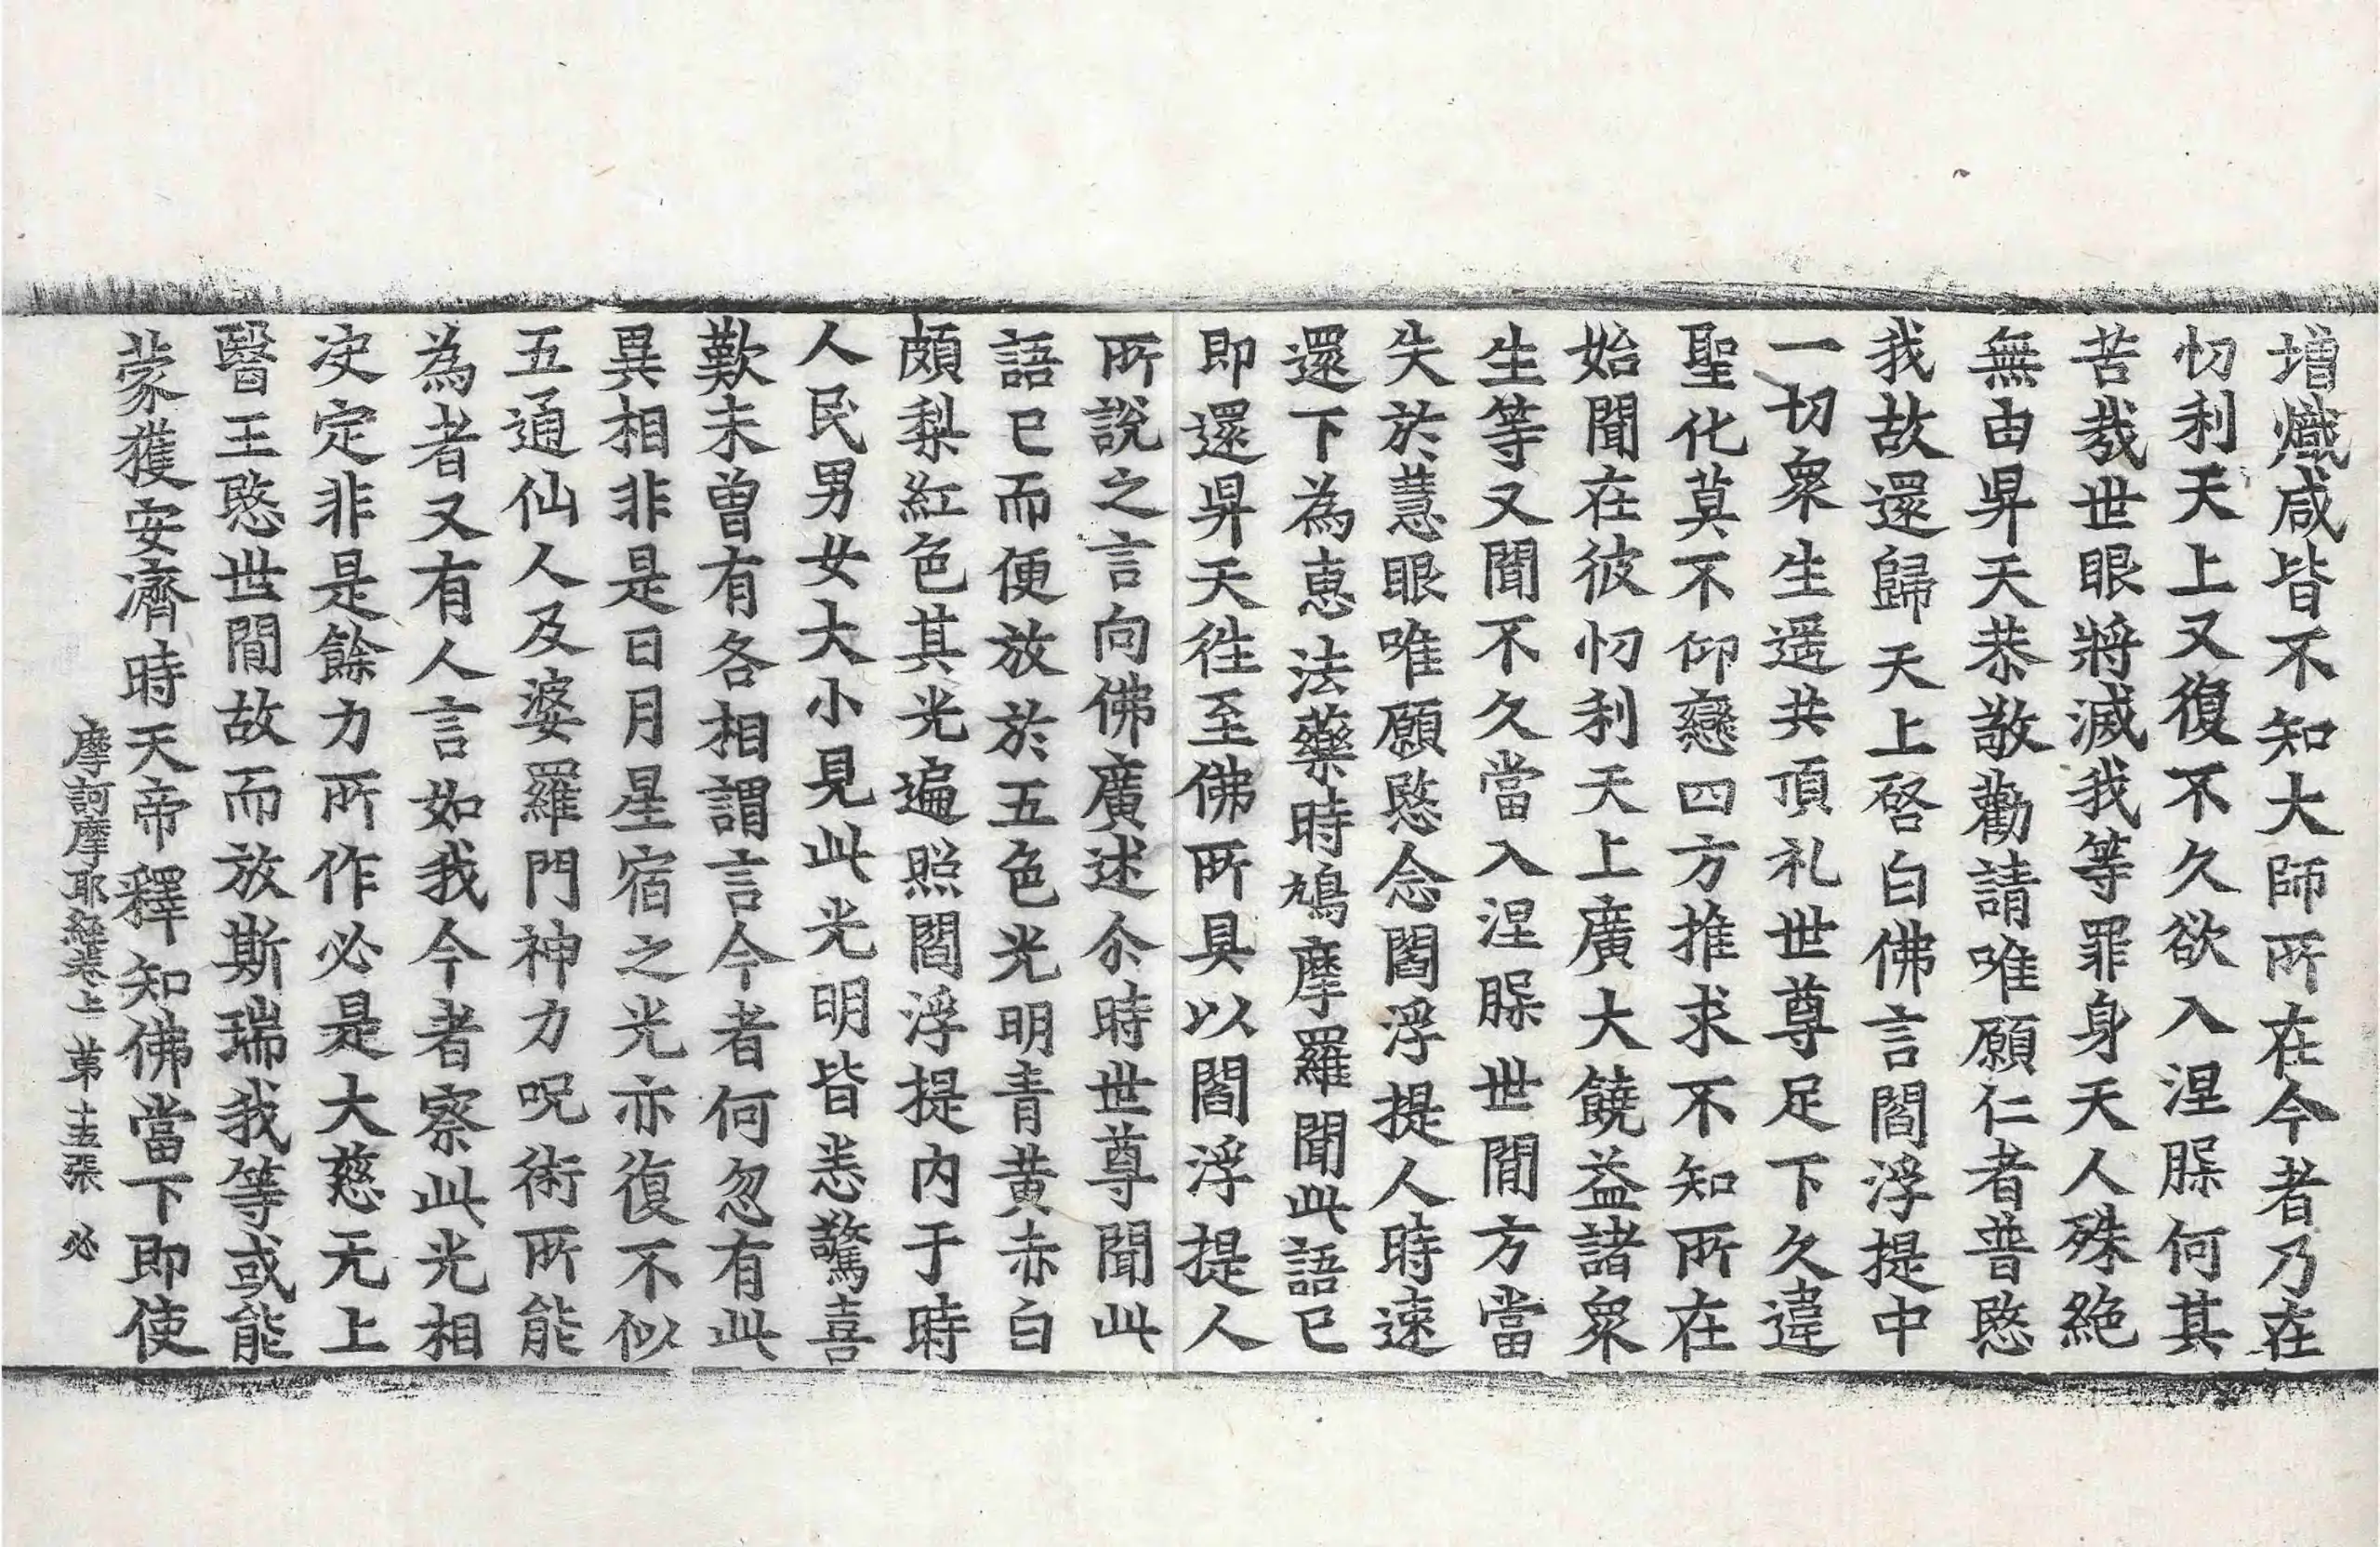 増熾咸皆不知大師所在今者乃在
忉利天上又復不久欲入涅脲何其
苦哉世眼將滅我等罪身天人殊絶
無由昇天恭敬勸請唯願仁者普愍
我故還歸天上啓白佛言閻浮提中
一切衆生遥共頂礼世尊足下久違
聖化莫不仰戀四方推求不知所在
始聞在彼忉利天上廣大饒益諸衆
生等又聞不久當入涅脲世間方當
失於慧眼唯願愍念閻浮提人時速
還下為恵法藥時鳩摩羅聞此語已
即還昇天徃至佛所具以閻浮提人
所說之言向佛廣述尒時世尊聞此
語已而便放於五色光明青黄赤白
頗梨紅色其光遍照閻浮提内于時
人民男女大小見此光明皆悉驚喜
歎未曽有各相謂言今者何忽有此
異相非是日月星宿之光亦復不似
五通仙人及婆羅門神力呪術所能
為者又有人言如我今者察此光相
决定非是餘力所作必是大慈无上
醫王愍世間故而放斯瑞我等或能
蒙獲安濟時天帝釋知佛當下即使
摩訶摩耶經卷上 第十五張 必